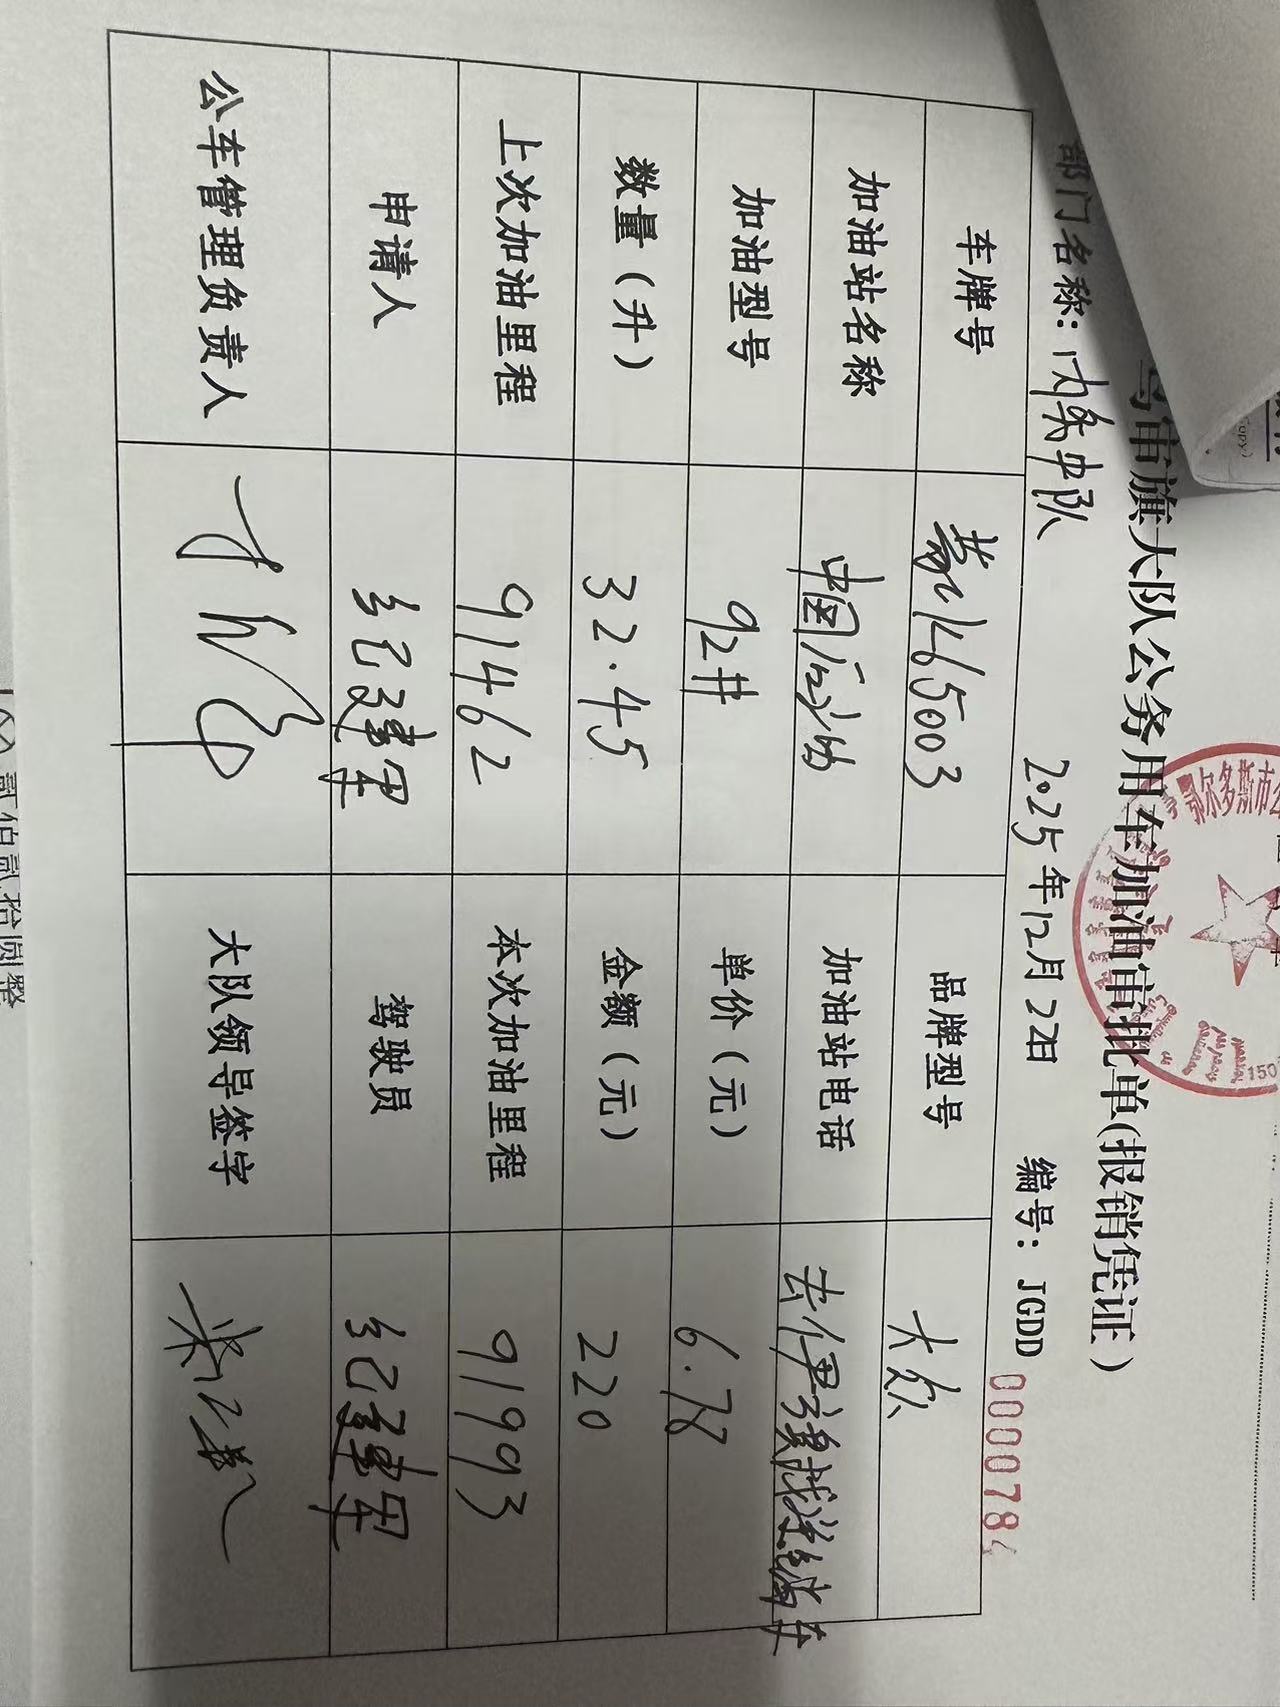 审旗大队公务用车加油审批单(报销凭证)
部门名称：内务中队 2025年12月2日 编号：JGDD 000078
车牌号 蒙K65003 品牌型号 大众
加油站名称 中国石油 加油站电话
加油型号 92# 单价（元） 6.78
数量（升） 32.45 金额（元） 220
上次加油里程 91462 本次加油里程 91993
申请人 纪建军 驾驶员 纪建军
公车管理负责人 大队领导签字
鄂尔多斯市公
150
Copy)
贰佰贰拾圆整